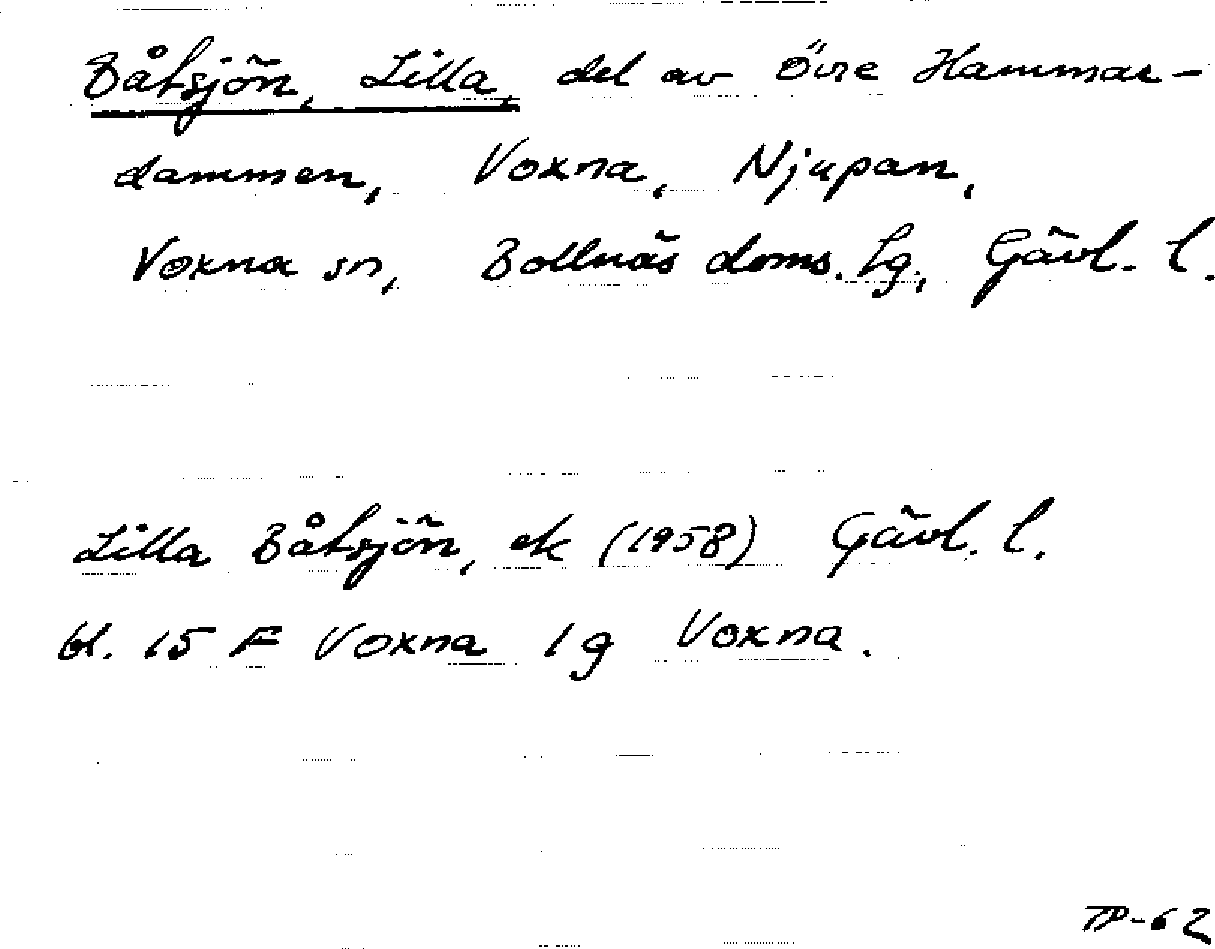 Båtsjön, Lilla, del av Övre Hammar-
dammen, Voxna, Njupan,
Voxna sn, Bollnäs doms. lg., Gävl. l.
Lilla Båtsjön, ek (1958) Gävl. l.
bl. 15 F Voxna 1 g Voxna.
TP-62